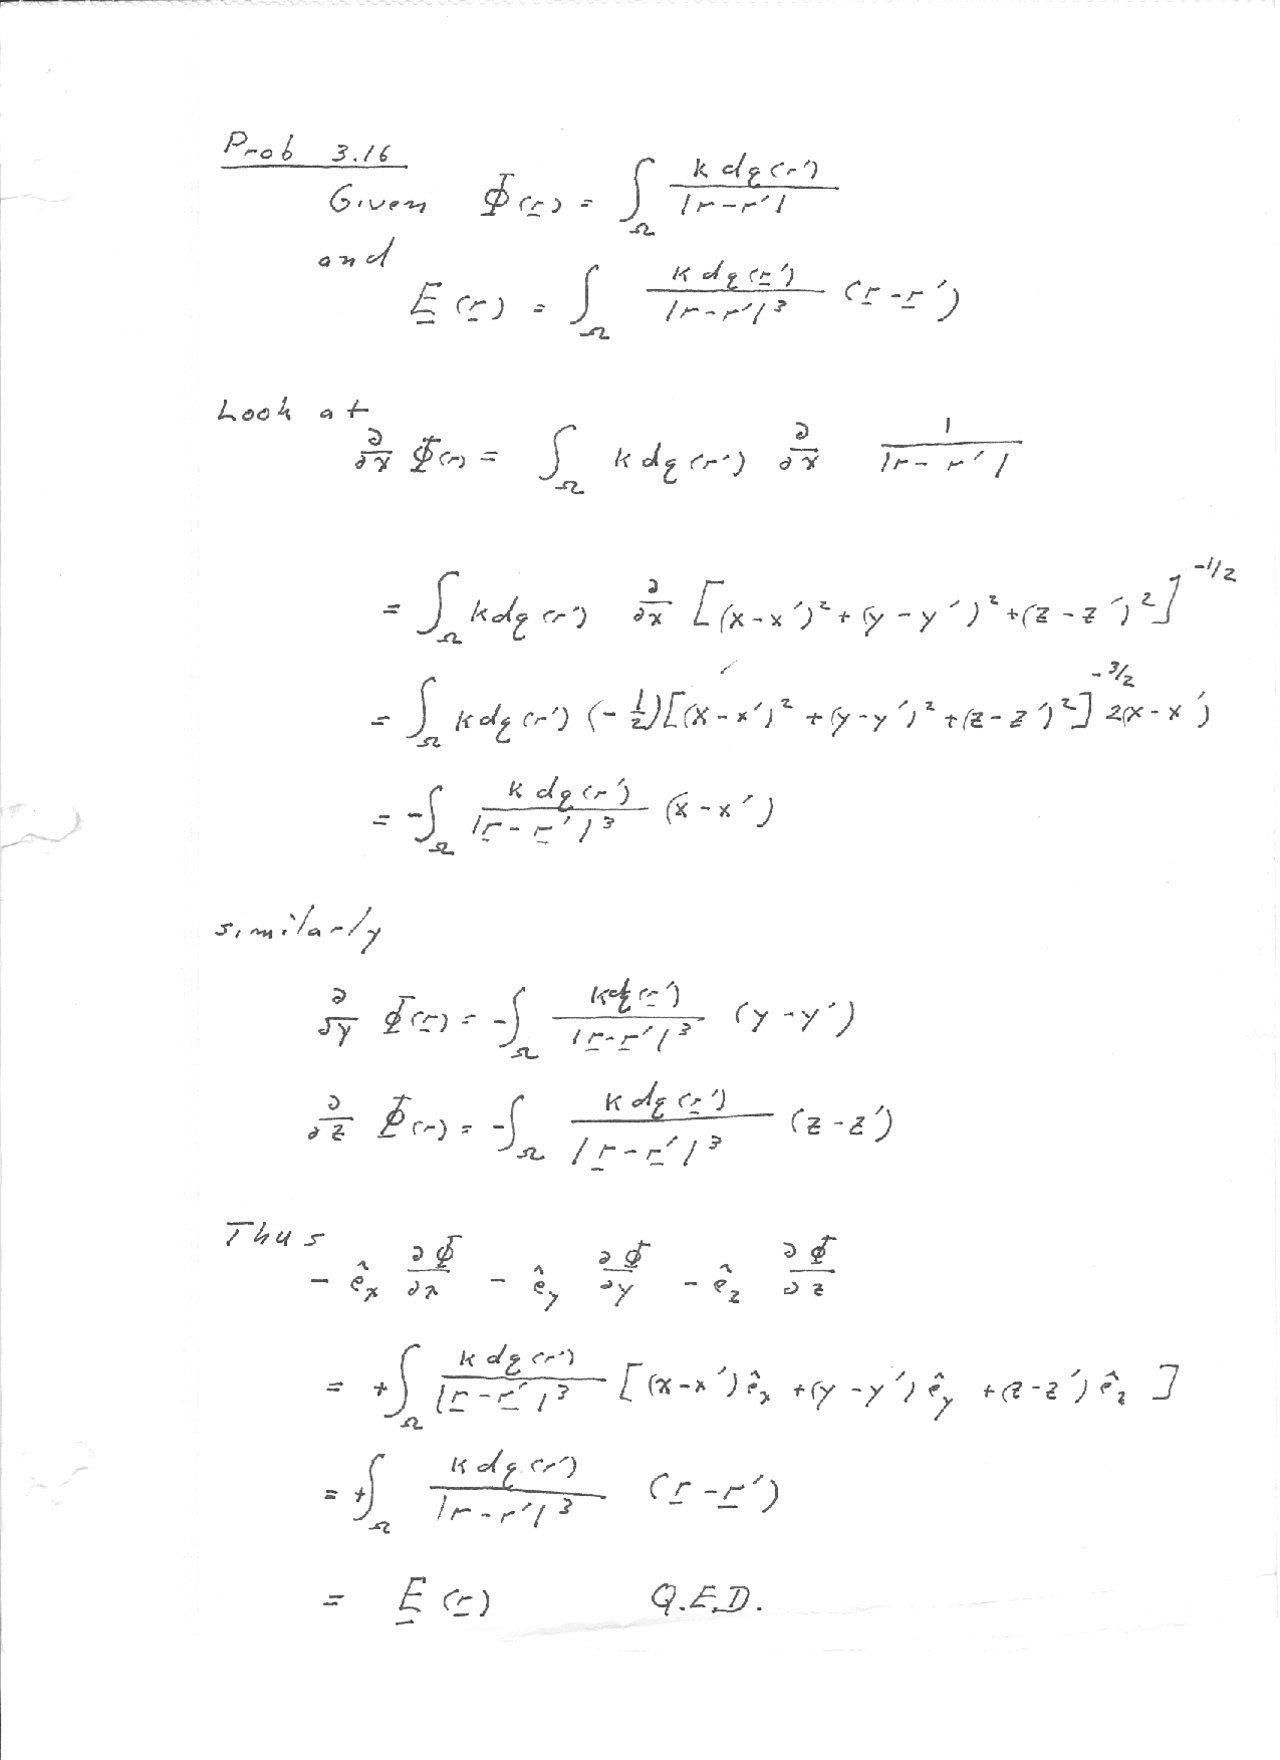 Prob 3.16
Given Φ(r̲) = ∫_Ω k dq(r') / |r-r'|
and
E̲(r̲) = ∫_Ω k dq(r̲') / |r-r'|³ (r̲-r̲')
Look at
∂/∂x Φ(r) = ∫_Ω k dq(r') ∂/∂x 1/|r-r'|
= ∫_Ω k dq(r') ∂/∂x [(x-x')²+(y-y')²+(z-z')²]^{-1/2}
= ∫_Ω k dq(r') (-1/2)[(x-x')²+(y-y')²+(z-z')²]^{-3/2} 2(x-x')
= -∫_Ω k dq(r') / |r̲-r̲'|³ (x-x')
similarly
∂/∂y Φ(r̲) = -∫_Ω k dq(r̲') / |r̲-r̲'|³ (y-y')
∂/∂z Φ(r) = -∫_Ω k dq(r̲') / |r̲-r̲'|³ (z-z')
Thus
- ê_x ∂Φ/∂x - ê_y ∂Φ/∂y - ê_z ∂Φ/∂z
= +∫_Ω k dq(r') / |r̲-r̲'|³ [(x-x')ê_x +(y-y')ê_y +(z-z')ê_z]
= +∫_Ω k dq(r') / |r-r'|³ (r̲-r̲')
= E̲(r̲) Q.E.D.